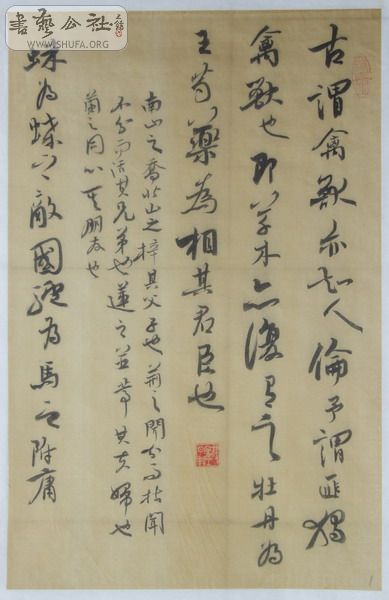 書藝公社
WWW.SHUFA.ORG
古謂禽獸亦知人倫予謂匪獨
禽獸也即草木亦復有之牡丹為
王芍藥為相其君臣也
南山之喬北山之梓其父子也荊之聞分而枯聞
不分而活其兄弟也蓮之並蒂其夫婦也
蘭之同心其朋友也
蛛為蝶之敵國驢為馬之附庸